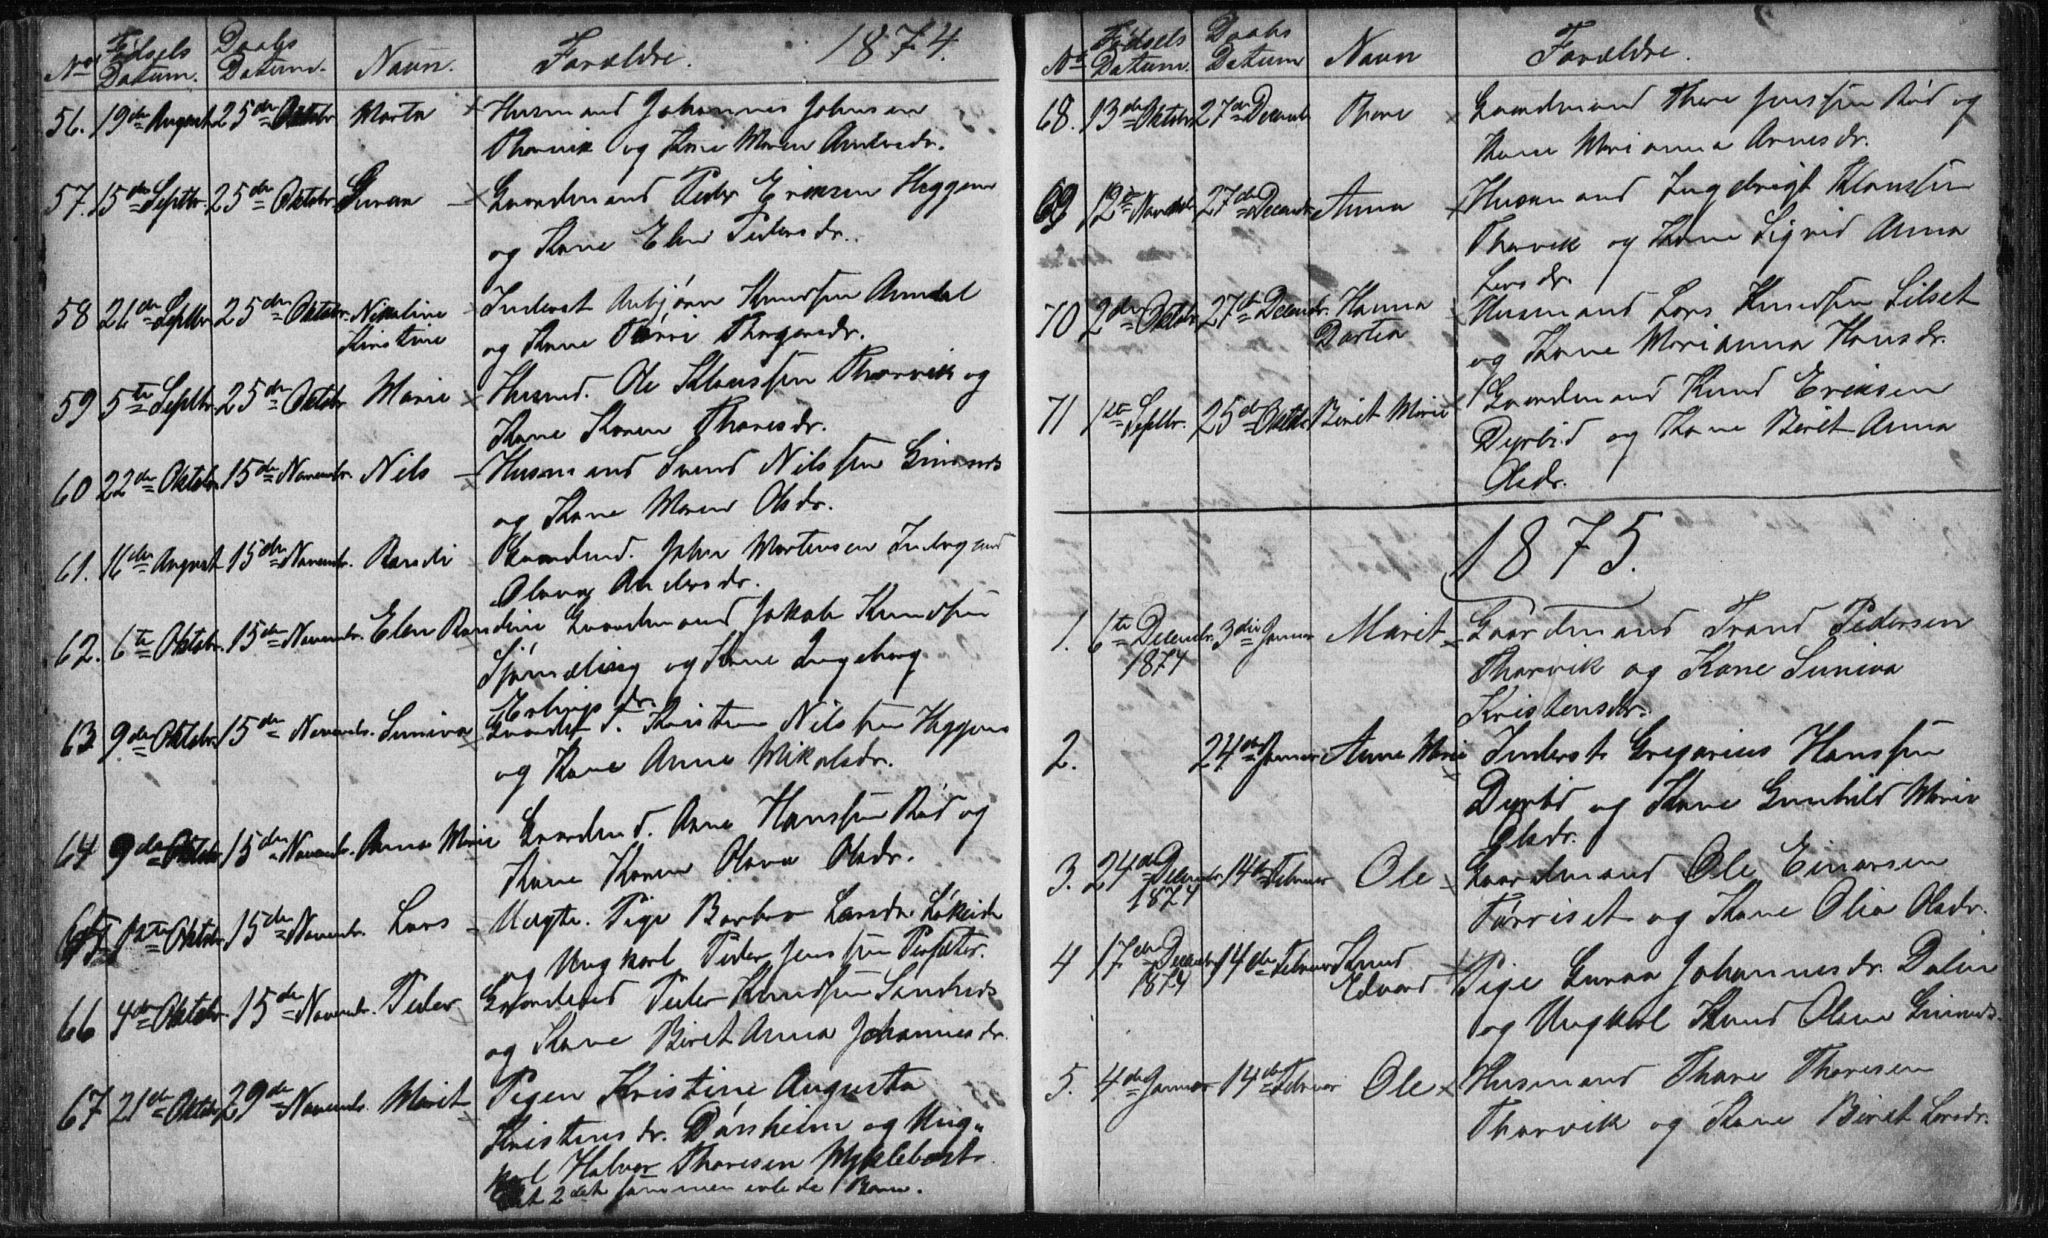 1874.
No Fødsels Datum. Daabs Datum. Navn. Forældre.
56. 19de August 25de Oktobr Marta Husmand Johannes Johnsen
Thorvik og Kone Maren Andersdr.
57. 15de Septbr. 25de Oktobr. Guraa Gaardmand Peder Eriksen Heggem
og Kone Elen Pedersdr.
58 26de Septbr. 25de Oktobr. Nikoline Inderst Asbjørn Knudsen
Kirstine og Kone
59 5te Septbr. 25de Oktobr Marie Husmd. Ole Klaussen Thorvik og
Kone Karen Thoresdr.
60 22de Oktobr. 15de Novembr. Nils Husmand Svend Nilssen Gimnes
og Kone Maren Olsdr.
61. 16de August 15de Novembr. Randi Gaardmd. John Mortensen
Andersdr.
62. 6te Oktobr. 15de Novembr. Elen Randine Gaardmand Jakob Knudsen
og Kone Ingeborg
Erlingsdr.
63 9de Oktobr. 15de Novembr. Suniva Kristen Nilssen Heggem
og Kone Anne Mikalsdr.
64 9de Oktobr. 15de Novembr. Anna Marie Gaardmd. Arne Hanssen Rød og
Kone Karen Olava Olsdr.
65 1ste Oktobr. 15de Novembr. Lars Uægte. Pige Barbro Larsdr.
og Ungkarl Peder Jenssen
66 4de Oktobr. 15de Novembr. Peder Gaardmand Peder Knudssen Sandnes
og Kone Beret Anna Johannesdr.
67 21de Oktbr 29de Novembr. Marit Pigen Kristine Augusta
Kristensdr. og Ung-
karl Halvor Thoresen Myklebost.
2det
No Fødsels Datum. Daabs Datum Navn Forældre.
68. 13de Oktobr. 27de Decembr Thore Gaardmand Thore Jenssen Rød og
Kone Marianna Arnesdr.
69 12te Novembr. 27de Decembr. Anna Husmand Ingebrigt Klaussen
Thorvik og Kone Sigrid Anna
Larsdr.
70 2den Oktobr. 27de Decembr. Hanna Husmand Lars Knudssen Silset
Dortea og Kone Marianna Hansdr.
71 1ste Septbr. 25de Oktbr Beret Marie Gaardmand Knud Eriksen
Dyrlid og Kone Beret Anna
Olsdr.
1875.
1. 6te Decembr. 3die Januar Marit Gaardmand Trond Pedersen
1874 Thorvik og Kone Suniva
Kristensdr.
2. 24de Januar Anne Marie Inderst Gregorius Hanssen
Dyrlid og Kone Gunhild Marie
Olsdr.
3. 24de Decembr. 14de Februar Ole Gaardmand Ole Einarsen
1874 og Kone Olia Olsdr.
4 17de Decembr. 14de Februar Knud Pige Guraa Johannesdr. Dalen
1874 Edvard og Ungkarl Knud Olsen Gimnes.
5. 4de Januar 14de Februar Ole Husmand Thore Thoresen
Thorvik og Kone Beret Larsdr.